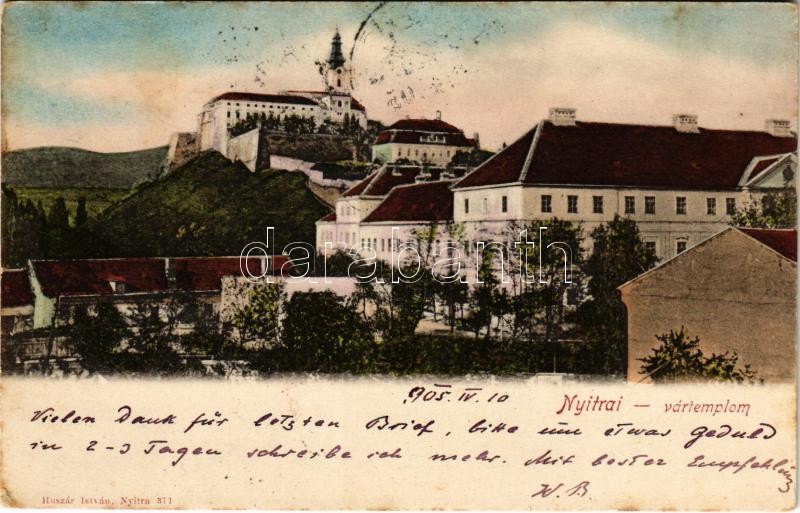 darabanth
905. IV. 10
Nyitrai — vártemplom
Vielen Dank für letzten Brief, bitte um etwas Geduld
in 2-3 Tagen schreibe ich mehr. Mit bester Empfehlung
W. B.
Huszár István, Nyitra 371